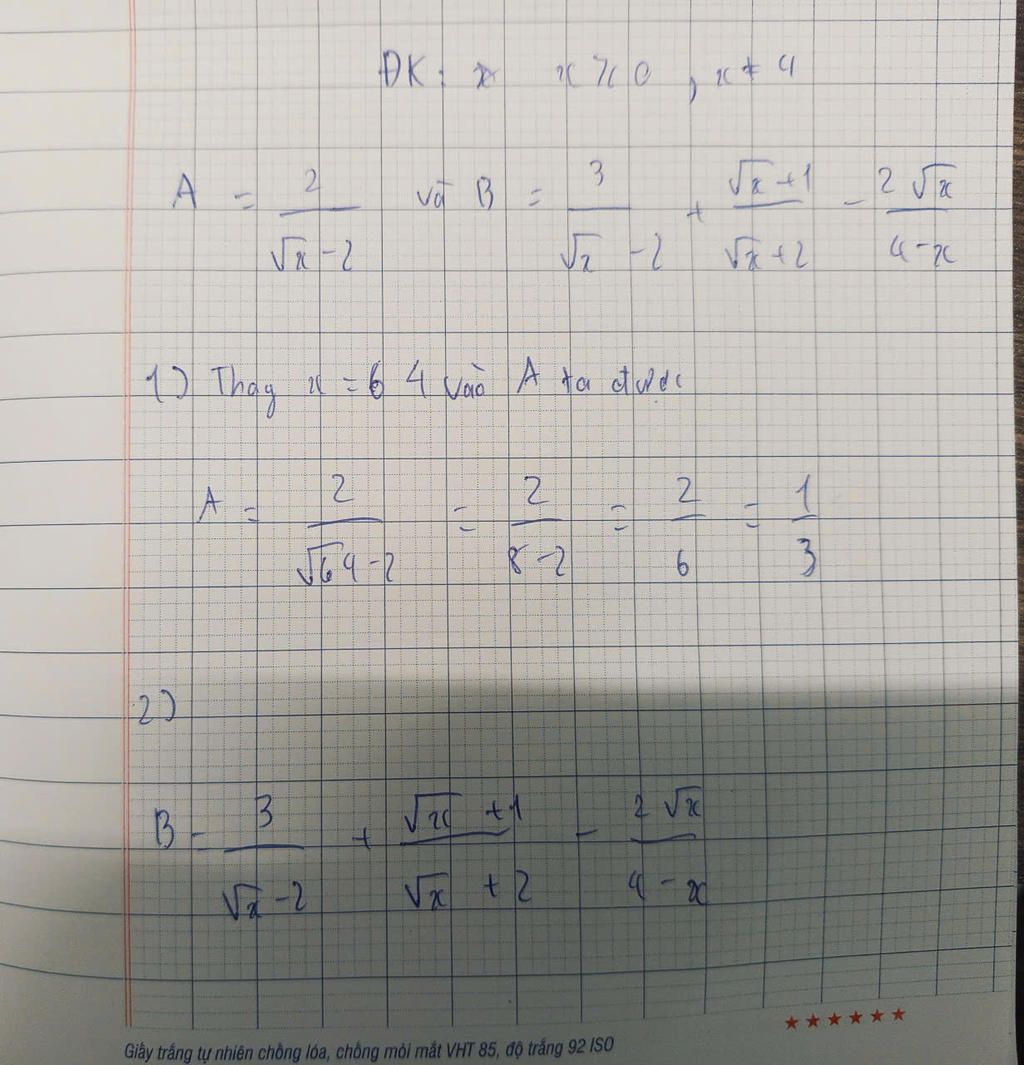 ĐK: x x ⩾ 0 , x ≠ 4
A = 2/(√x - 2) và B = 3/(√x - 2) + (√x + 1)/(√x + 2) - 2√x/(4 - x)
1) Thay x = 64 vào A ta được
A = 2/(√64 - 2) = 2/(8 - 2) = 2/6 = 1/3
2)
B = 3/(√x - 2) + (√x + 1)/(√x + 2) - 2√x/(4 - x)
★★★★★★
Giấy trắng tự nhiên chống lóa, chống mỏi mắt VHT 85, độ trắng 92 ISO